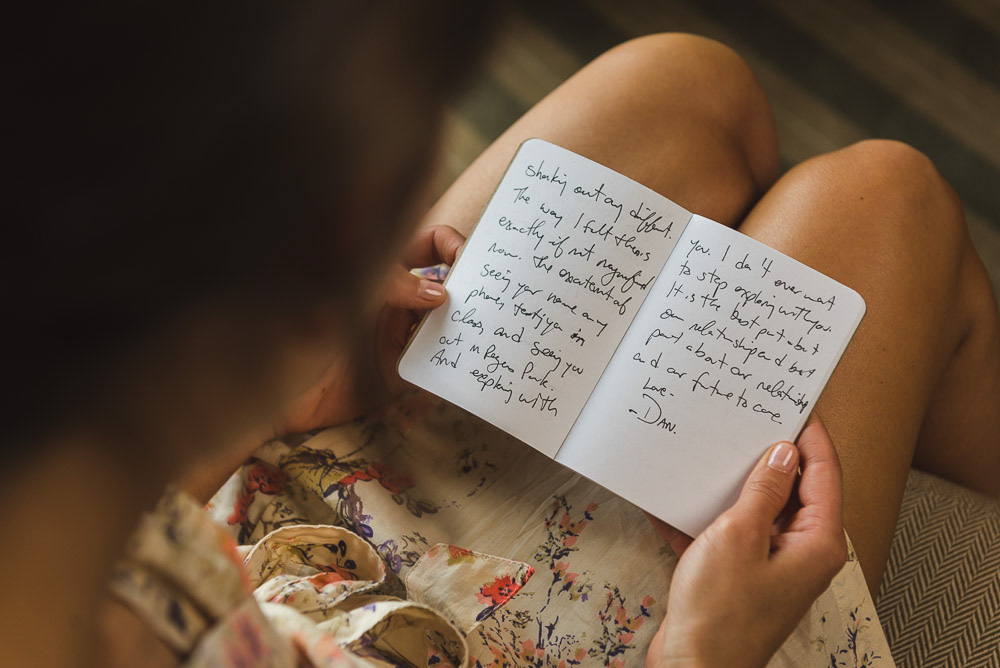 out any different.
The way I felt then is
exactly if not magnified
now. The excitement of
seeing your name on my
phone, texting you in
class, and seeing you
out in Rogers Park.
And exploring with
you. I don't ever want
to stop exploring with you.
It is the best part about
our relationship and best
part about our relationship
and our future to come.
Love -
- DAN.